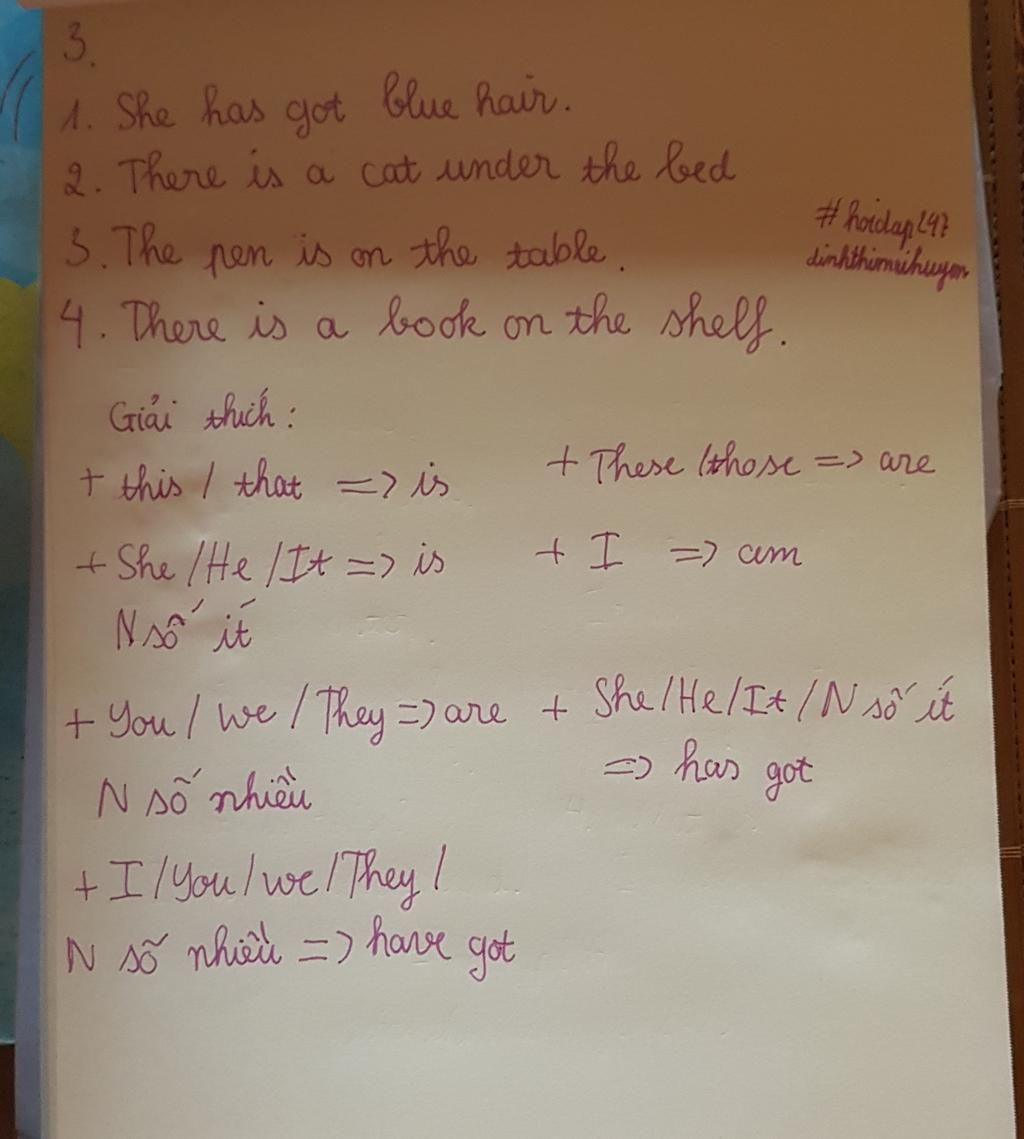 3.
1. She has got blue hair.
2. There is a cat under the bed
3. The pen is on the table.
#hoidap247
dinhthimaihuyen
4. There is a book on the shelf.
Giải thích:
+ this / that => is
+ These /those => are
+ She /He /It => is
N số ít
+ I => am
+ You / we / They => are
N số nhiều
+ She /He /It /N số ít
=> has got
+ I /You /we /They /
N số nhiều => have got